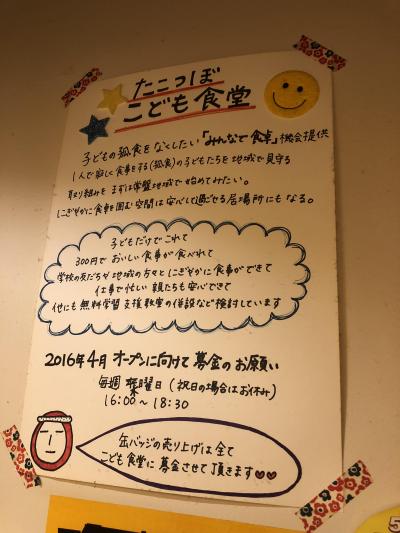 たこつぼ
こども食堂
子どもの孤食をなくしたい「みんなで食卓」機会提供
1人で寂しく食事をする(孤食)の子どもたちを地域で見守る
取り組みをまずは常盤地域で始めてみたい。
にぎやかに食卓を囲む空間は安心して過ごせる居場所にもなる。
子どもだけでこれて
300円でおいしい食事が食べれて
学校の友だちが地域の方々とにぎやかに食事ができて
仕事で忙しい親たちも安心できて
他にも無料学習支援教室の併設など検討しています
2016年4月オープンに向けて募金のお願い
毎週 曜日(祝日の場合はお休み)
16:00〜18:30
缶バッジの売り上げは全て
こども食堂に募金させて頂きます
5